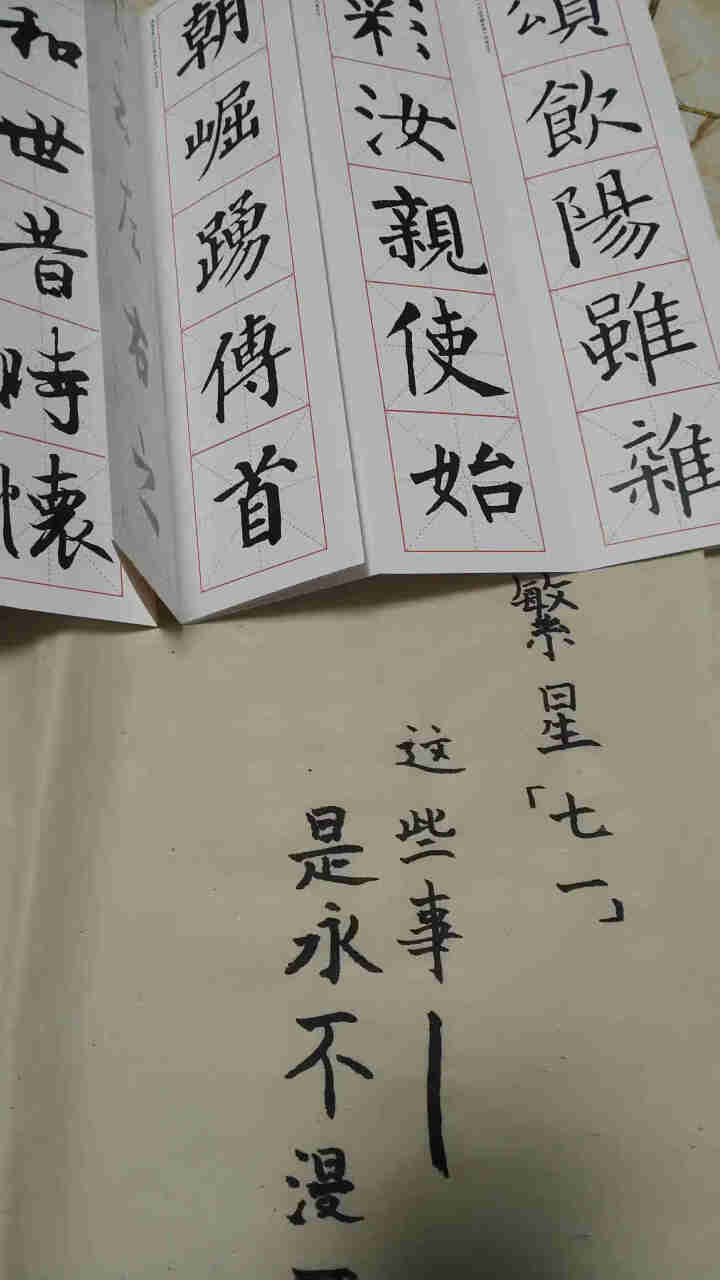 頌飲陽雖雜
彩汝親使始
朝崛踴傳首
和世昔時懷
繁星「七一」
这些事—
是永不漫